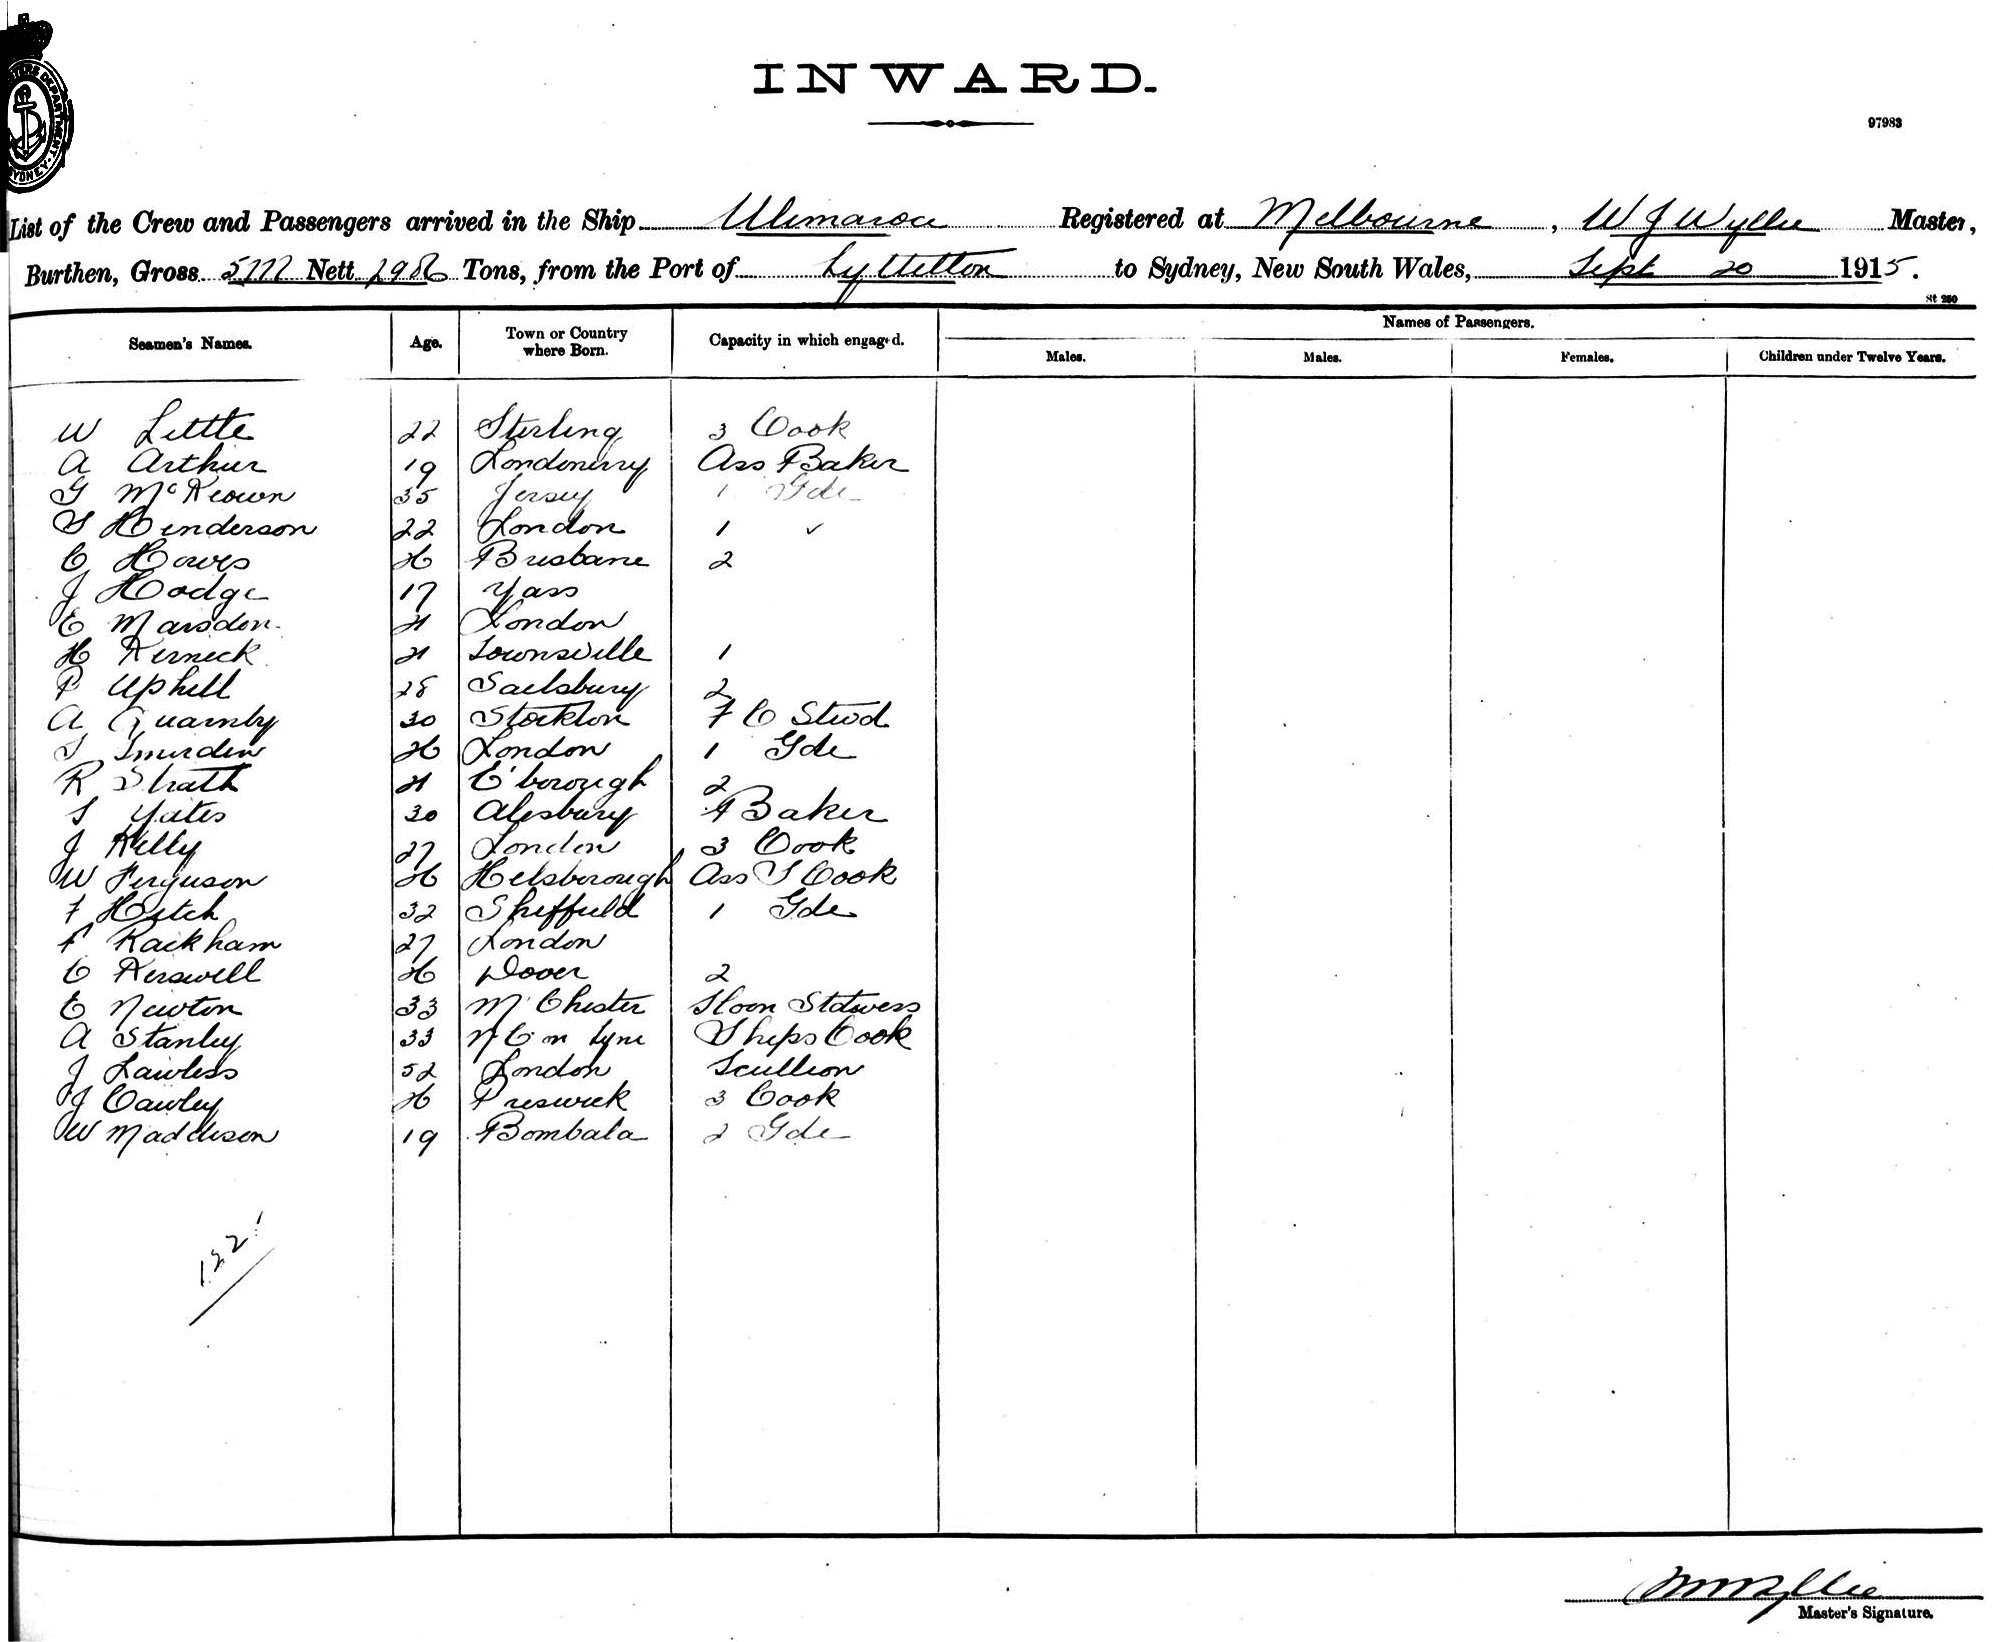 INWARD.
97983
List of the Crew and Passengers arrived in the Ship Ulimaroa Registered at Melbourne, W J Wyllie Master,
Burthen, Gross 5777 Nett 2986 Tons, from the Port of Lyttelton to Sydney, New South Wales, Sept 20 1915.
St 250
Names of Passengers.
Seamen's Names. Age. Town or Country where Born. Capacity in which engaged. Males. Males. Females. Children under Twelve Years.
W Little 22 Stirling 3 Cook
A Arthur 19 Londonerry Ass Baker
G McKeown 35 Jersey 1 Gde
S Henderson 22 London 1
C Howes Brisbane 2
J Hodge 17 Yass
E Marsden 21 London
H Kerneck 21 Townsville 1
P Uphill 28 Sailsbury 2
A Quarmby 30 Stockton F C Stwd
London 1 Gde
R Strath 21 E'borough 2
S Yates 30 Alesbury Baker
J Kelly 27 London 3 Cook
W Ferguson Helsborough Ass S Cook
F Hitch 32 Sheffield 1 Gde
F Rackham 27 London
C Kerswell Dover 2
E Newton 33 M'Chester Sloon Stdwess
A Stanley 33 N C on Tyne Ships Cook
J Lawless 52 London Scullion
J Cawley Preswick 3 Cook
W Maddison 19 Bombala 2 Gde
122
Master's Signature.